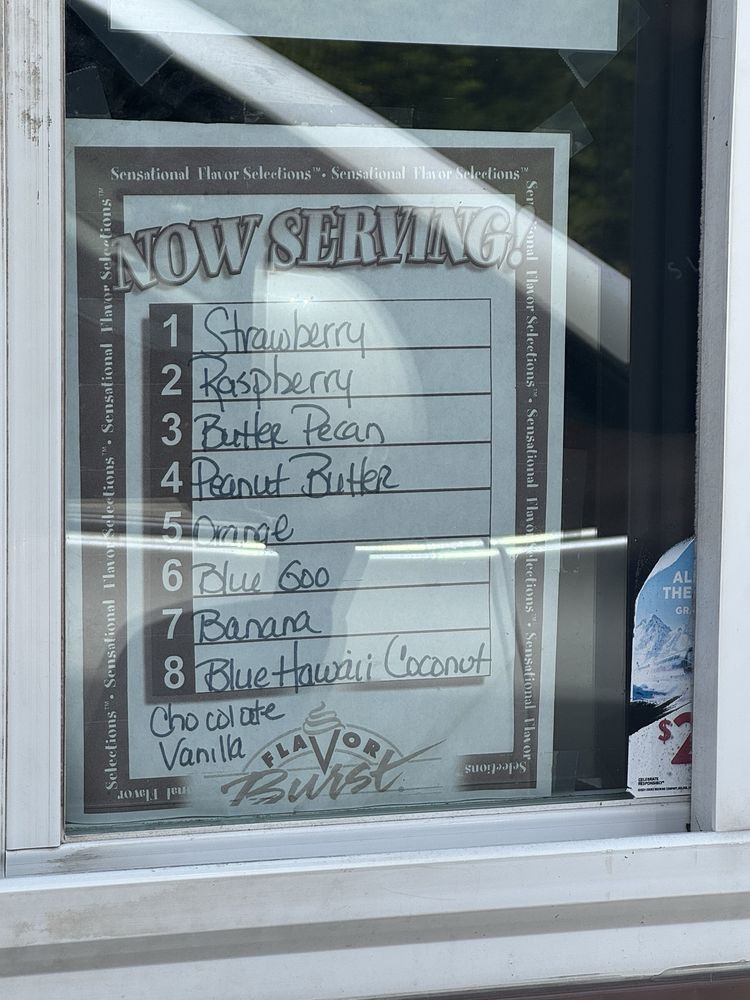 Sensational Flavor Selections™ • Sensational Flavor Selections™
Sensational Flavor Selections™ • Sensational Flavor Selections™ • Sensational Flavor
Selections™ • Sensational Flavor Selections™ • Sensational Flavor Selections™
NOW SERVING!
1 Strawberry
2 Raspberry
3 Butter Pecan
4 Peanut Butter
5 Orange
6 Blue Goo
7 Banana
8 Blue Hawaii Coconut
Chocolate
Vanilla
FLAVOR
Burst
Selections
AL
THE
GR
$2
CELEBRATE
RESPONSIBLY